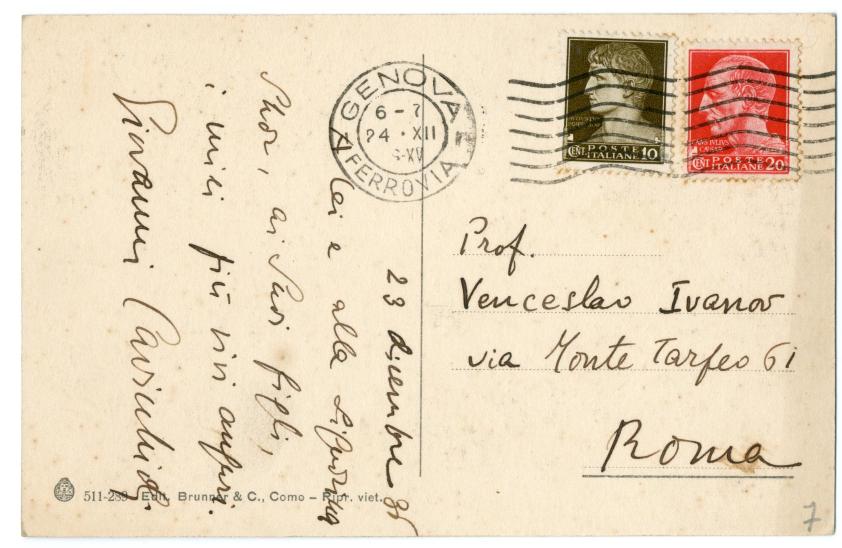 23 dicembre 35
A Lei e alla Signora
Sua, ai Suoi figli,
i miei più vivi auguri.
Giovanni
Prof.
Venceslao Ivanov
via Monte Tarpeo 61
Roma
GENOVA
6 - 7
24 · XII
FERROVIA
POSTE
ITALIANE
CENT.
10
CAIUS IVLIVS
CAESAR
POSTE
ITALIANE
CENT.
20
Edit. Brunner & C., Como – Ripr. viet.
7